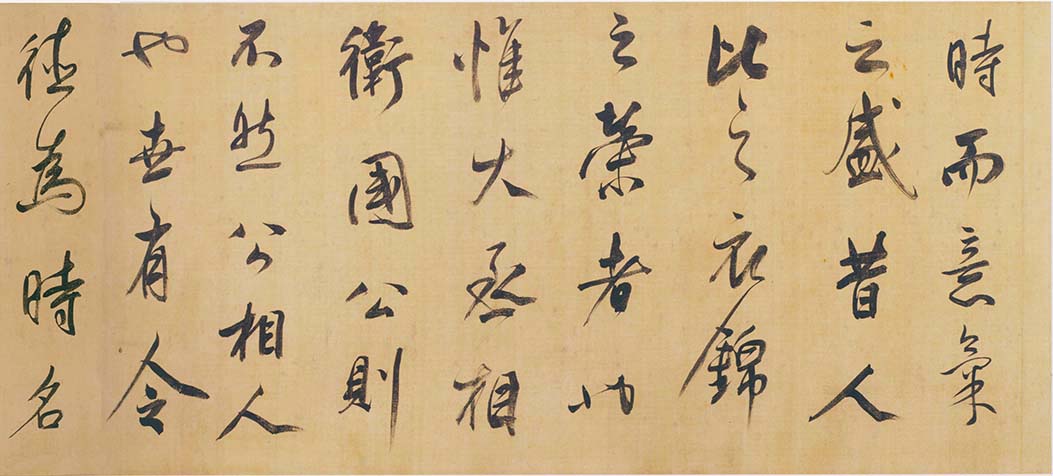 時而意氣
之盛昔人
比之衣錦
之榮者也
惟大丞相
衛國公則
不然公相人
也世有令
德為時名